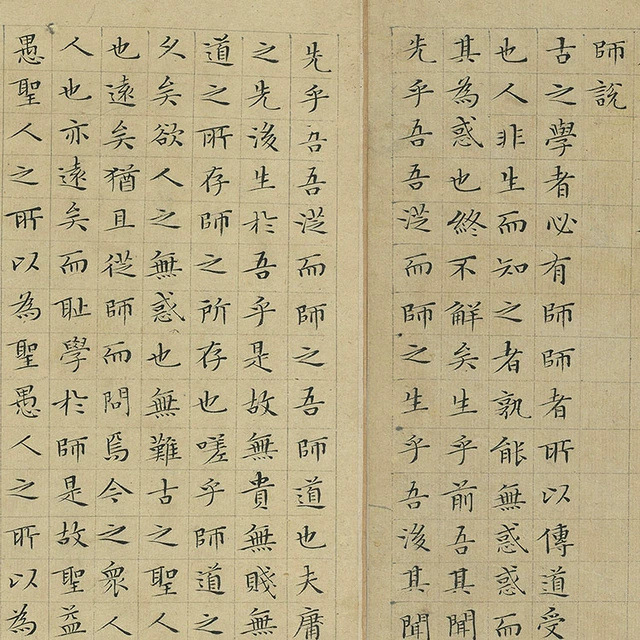 師說
古之學者必有師師者所以傳道受
也人非生而知之者孰能無惑惑而
其為惑也終不解矣生乎前吾其聞
先乎吾吾從而師之生乎吾後其聞
先乎吾吾從而師之吾師道也夫庸
之先後生於吾乎是故無貴無賤無
道之所存師之所存也嗟乎師道之
久矣欲人之無惑也無難古之聖人
也遠矣猶且從師而問焉今之衆人
人也亦遠矣而耻學於師是故聖益
愚聖人之所以為聖愚人之所以為